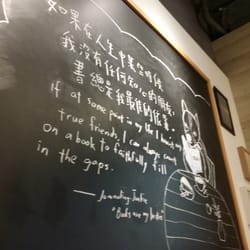 如果在人生中某個時候
我沒有任何知心的朋友,
書總是我最佳的依靠.
If at some point in my life I had no
true friends, I can always count
on a book to faithfully fill
in the gaps.
"Books are my